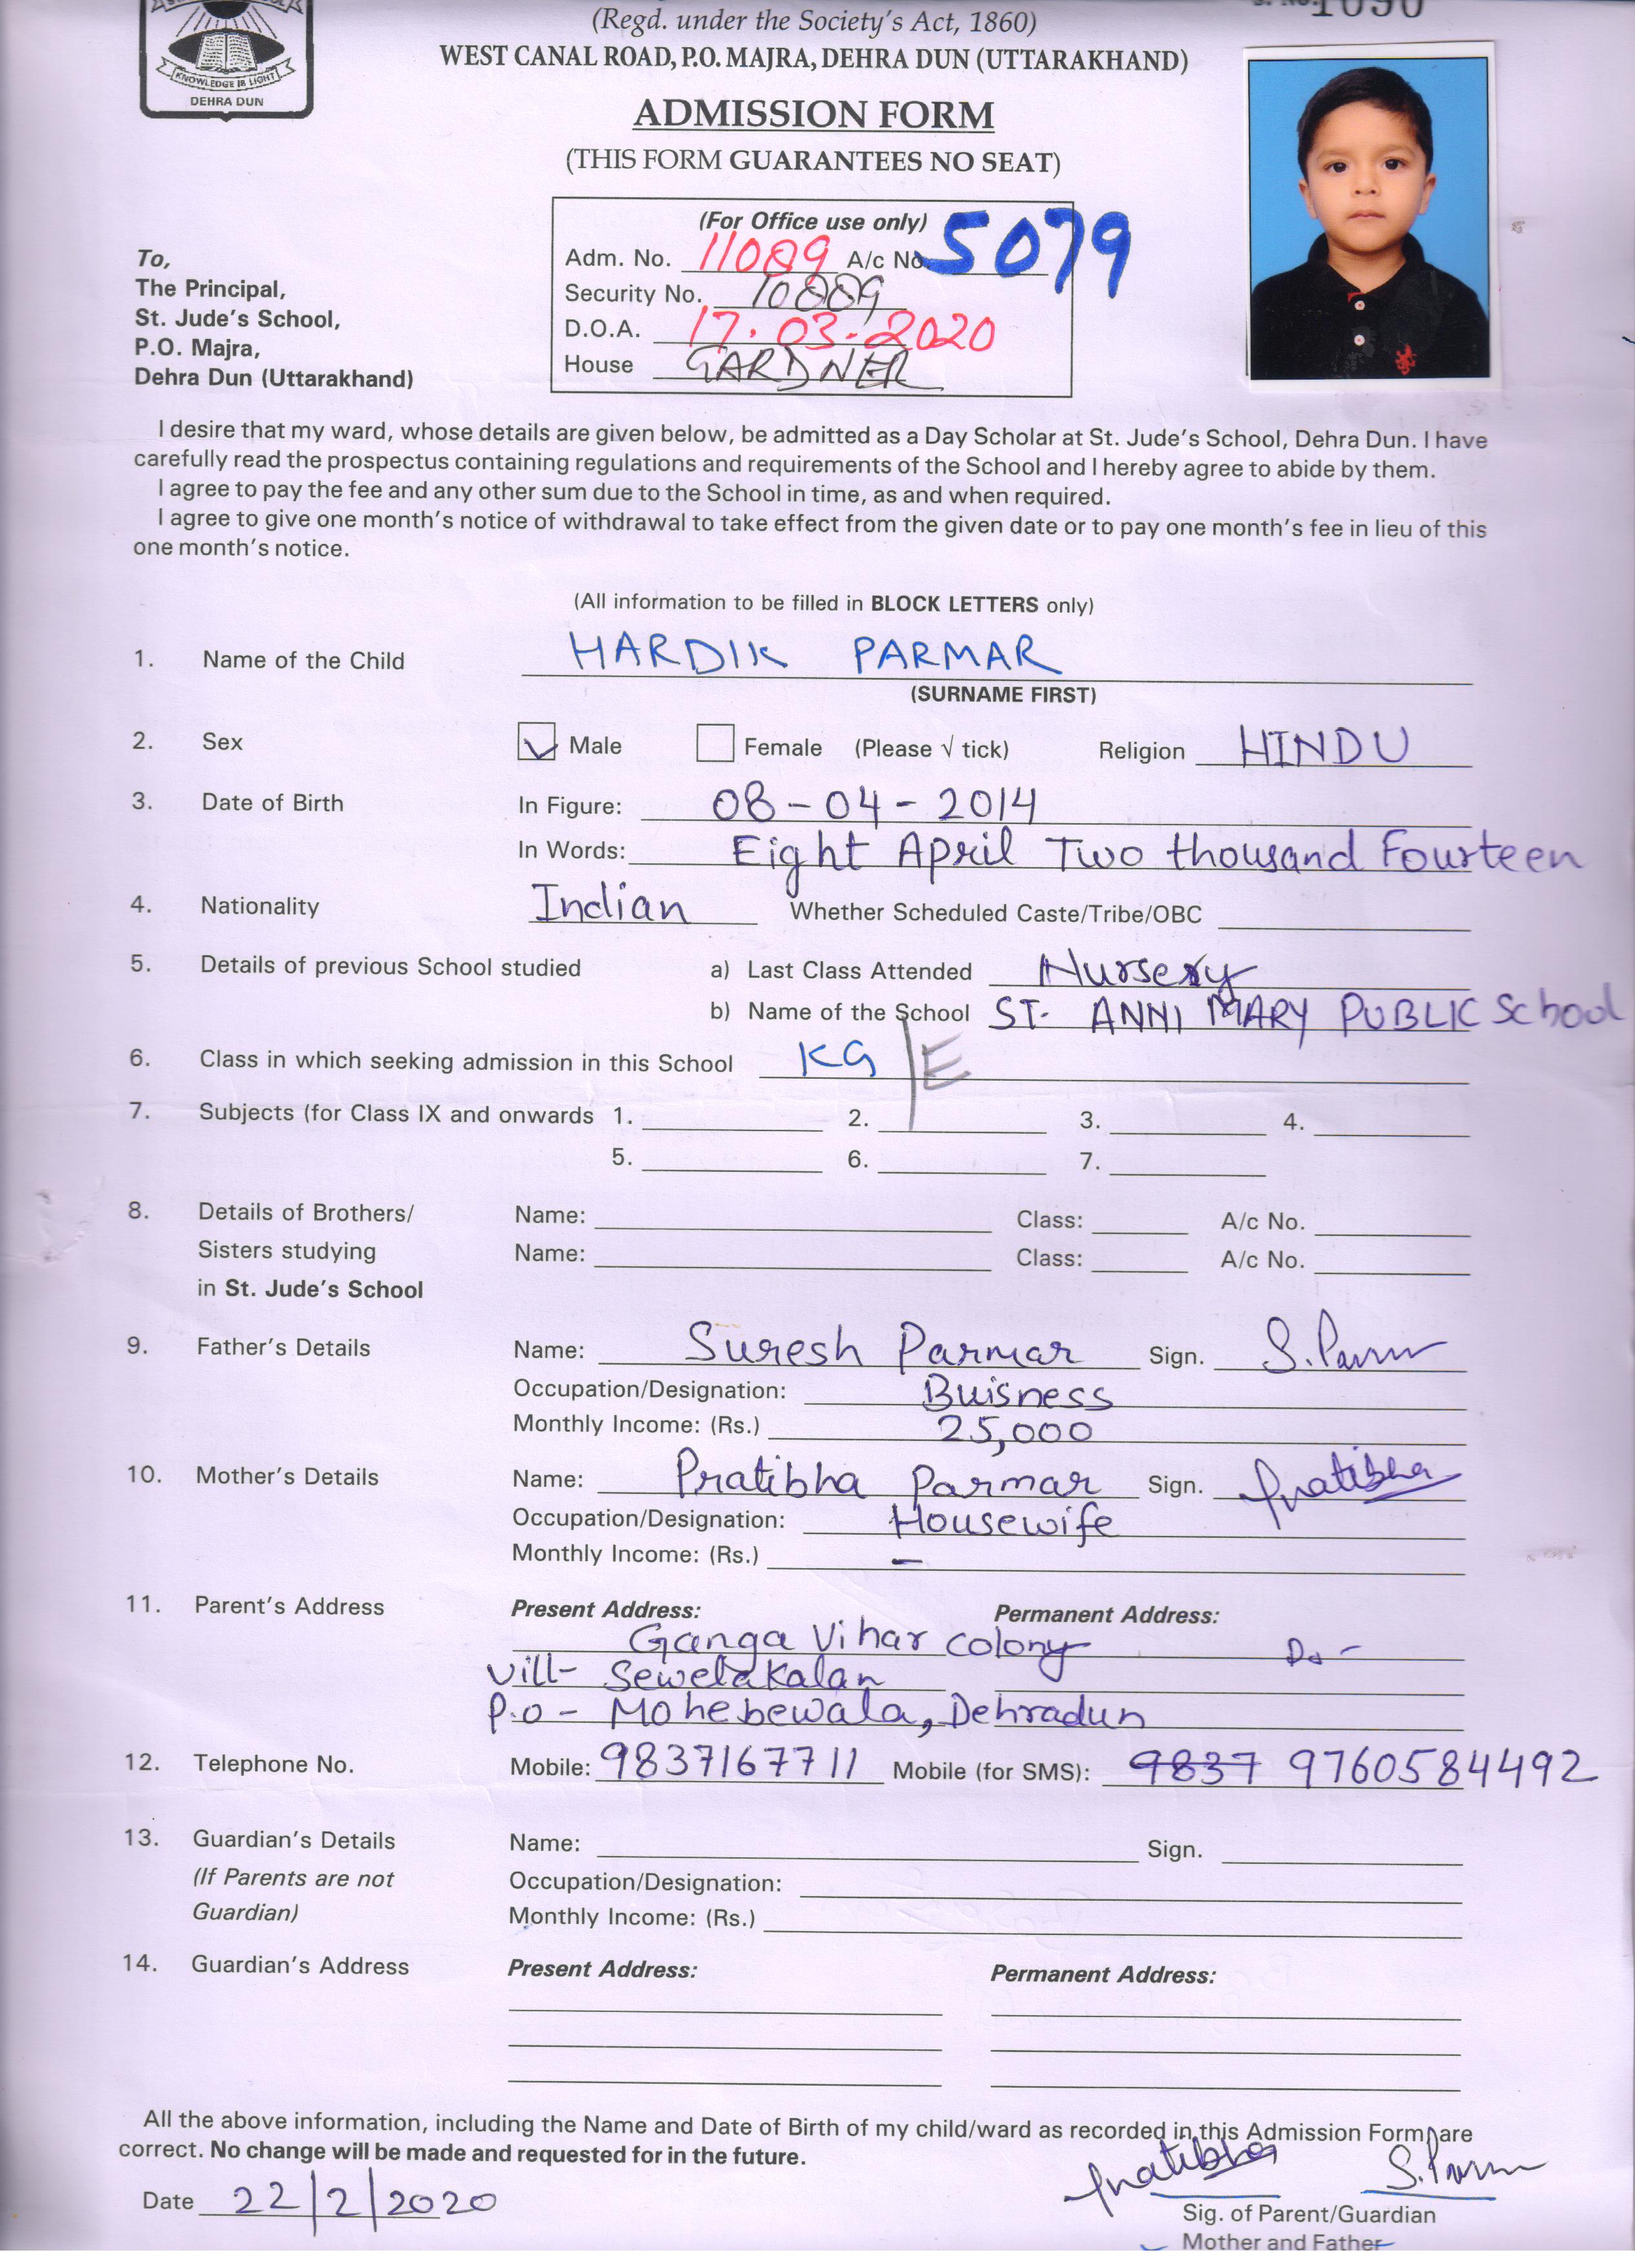 KNOWLEDGE IS LIGHT
DEHRA DUN
(Regd. under the Society's Act, 1860)
WEST CANAL ROAD, P.O. MAJRA, DEHRA DUN (UTTARAKHAND)
ADMISSION FORM
(THIS FORM GUARANTEES NO SEAT)
(For Office use only)
Adm. No. 11089 A/c No. 5079
Security No. 10889
D.O.A. 17.03.2020
House GARDNER
To,
The Principal,
St. Jude's School,
P.O. Majra,
Dehra Dun (Uttarakhand)
I desire that my ward, whose details are given below, be admitted as a Day Scholar at St. Jude's School, Dehra Dun. I have
carefully read the prospectus containing regulations and requirements of the School and I hereby agree to abide by them.
I agree to pay the fee and any other sum due to the School in time, as and when required.
I agree to give one month's notice of withdrawal to take effect from the given date or to pay one month's fee in lieu of this
one month's notice.
(All information to be filled in BLOCK LETTERS only)
1. Name of the Child HARDIK PARMAR
(SURNAME FIRST)
2. Sex Male Female (Please √ tick) Religion HINDU
3. Date of Birth In Figure: 08-04-2014
In Words: Eight April Two thousand Fourteen
4. Nationality Indian Whether Scheduled Caste/Tribe/OBC
5. Details of previous School studied a) Last Class Attended Nursery
b) Name of the School ST. ANNI MARY PUBLIC School
6. Class in which seeking admission in this School KG | E
7. Subjects (for Class IX and onwards 1. 2. 3. 4.
5. 6. 7.
8. Details of Brothers/ Name: Class: A/c No.
Sisters studying Name: Class: A/c No.
in St. Jude's School
9. Father's Details Name: Suresh Parmar Sign. S. Parmar
Occupation/Designation: Buisness
Monthly Income: (Rs.) 25,000
10. Mother's Details Name: Pratibha Parmar Sign. Pratibha
Occupation/Designation: Housewife
Monthly Income: (Rs.) -
11. Parent's Address Present Address: Permanent Address:
Ganga Vihar colony Do -
Vill- Sewela Kalan
P.o- Mohebewala, Dehradun
12. Telephone No. Mobile: 9837167711 Mobile (for SMS): 9837 9760584492
13. Guardian's Details Name: Sign.
(If Parents are not Occupation/Designation:
Guardian) Monthly Income: (Rs.)
14. Guardian's Address Present Address: Permanent Address:
All the above information, including the Name and Date of Birth of my child/ward as recorded in this Admission Form are
correct. No change will be made and requested for in the future.
Pratibha S. Parmar
Date 22/2/2020
Sig. of Parent/Guardian
Mother and Father